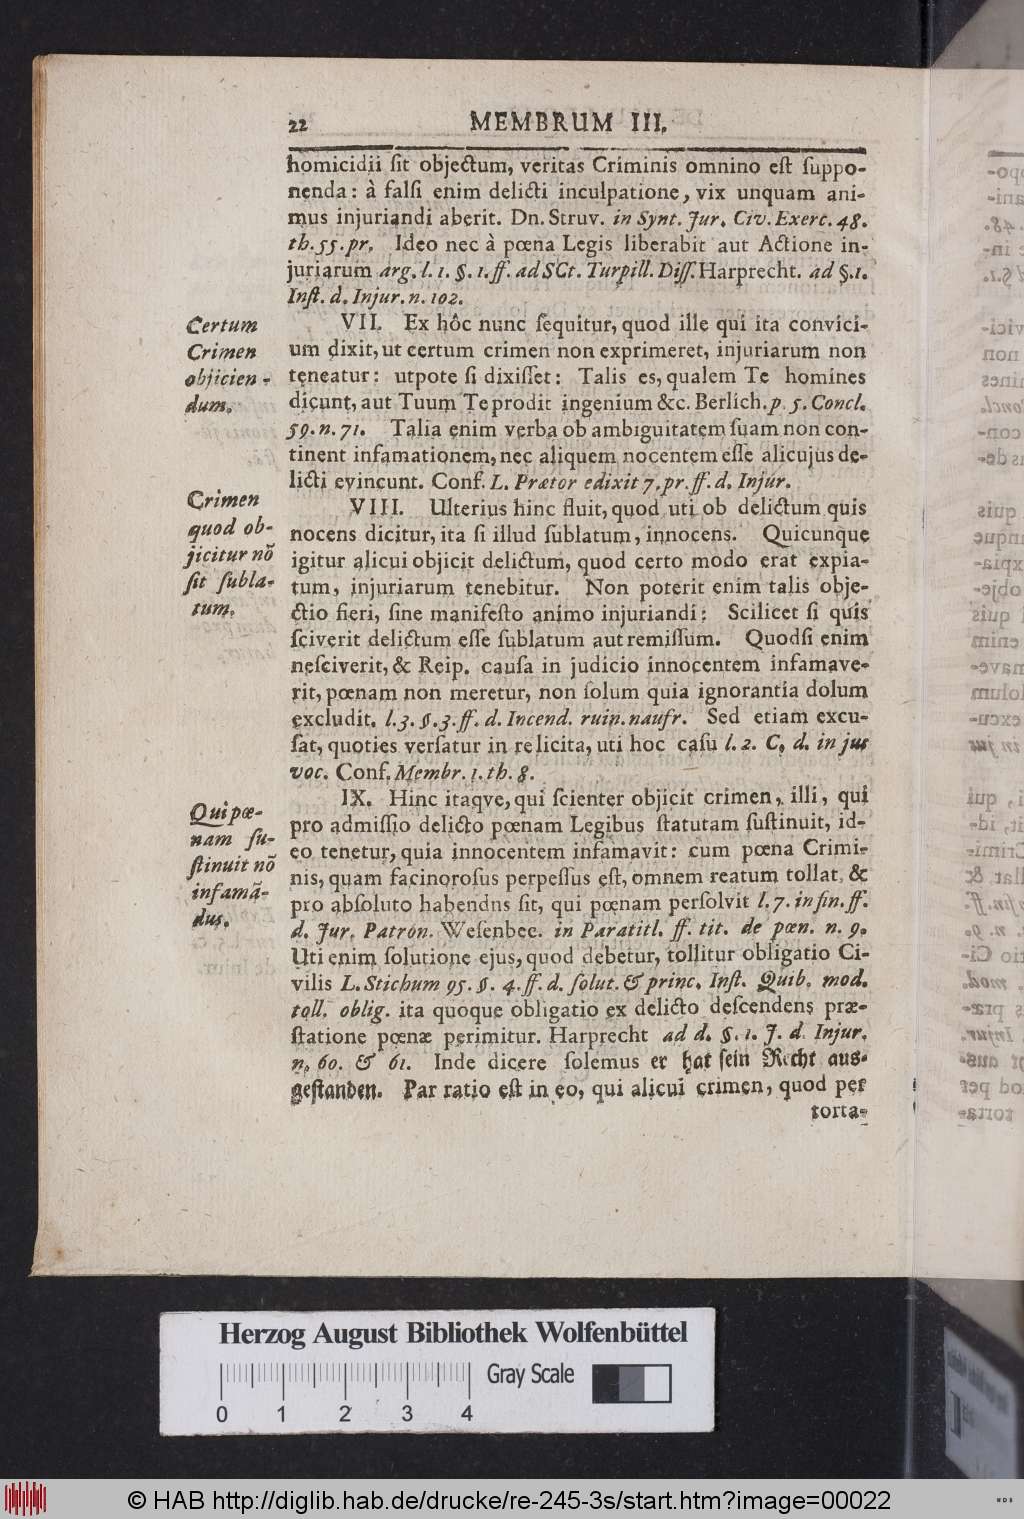 22 MEMBRUM III.
homicidii ſit objectum, veritas Criminis omnino eſt ſuppo-
nenda: à falſi enim delicti inculpatione, vix unquam ani-
mus injuriandi aberit. Dn. Struv. in Synt. Jur. Civ. Exerc. 48.
th. 55. pr. Ideo nec à pœna Legis liberabit aut Actione in-
juriarum arg. l. 1. §. 1. ff. ad SCt. Turpill. Diſſ. Harprecht. ad §. 1.
Inſt. d. Injur. n. 102.
Certum
Crimen
objicien-
dum.
VII. Ex hôc nunc ſequitur, quod ille qui ita convici-
um dixit, ut certum crimen non exprimeret, injuriarum non
teneatur: utpote ſi dixiſſet: Talis es, qualem Te homines
dicunt, aut Tuum Te prodit ingenium &c. Berlich. p. 5. Concl.
59. n. 71. Talia enim verba ob ambiguitatem ſuam non con-
tinent infamationem, nec aliquem nocentem eſſe alicujus de-
licti evincunt. Conf. L. Prætor edixit 7. pr. ff. d. Injur.
Crimen
quod ob-
jicitur nõ
ſit ſubla-
tum.
VIII. Ulterius hinc fluit, quod uti ob delictum quis
nocens dicitur, ita ſi illud ſublatum, innocens. Quicunque
igitur alicui objicit delictum, quod certo modo erat expia-
tum, injuriarum tenebitur. Non poterit enim talis obje-
ctio fieri, ſine manifeſto animo injuriandi: Scilicet ſi quis
ſciverit delictum eſſe ſublatum aut remiſſum. Quodſi enim
neſciverit, & Reip. cauſa in judicio innocentem infamave-
rit, pœnam non meretur, non ſolum quia ignorantia dolum
excludit. l. 3. §. 3. ff. d. Incend. ruin. naufr. Sed etiam excu-
ſat, quoties verſatur in re licita, uti hoc caſu l. 2. C. d. in jus
voc. Conf. Membr. 1. th. 8.
Qui pœ-
nam ſu-
ſtinuit nõ
infamã-
dus.
IX. Hinc itaqve, qui ſcienter objicit crimen, illi, qui
pro admiſſio delicto pœnam Legibus ſtatutam ſuſtinuit, id-
eo tenetur, quia innocentem infamavit: cum pœna Crimi-
nis, quam facinoroſus perpeſſus eſt, omnem reatum tollat, &
pro abſoluto habendns ſit, qui pœnam perſolvit l. 7. in fin. ff.
d. Jur. Patron. Weſenbec. in Paratitl. ff. tit. de pœn. n. 9.
Uti enim ſolutione ejus, quod debetur, tollitur obligatio Ci-
vilis L. Stichum 95. §. 4. ff. d. ſolut. & princ. Inſt. Quib. mod.
toll. oblig. ita quoque obligatio ex delicto deſcendens præ-
ſtatione pœnæ perimitur. Harprecht ad d. §. 1. J. d. Injur.
n. 60. & 61. Inde dicere ſolemus er hat ſein Recht aus-
geſtanden. Par ratio eſt in eo, qui alicui crimen, quod per
torta-
Herzog August Bibliothek Wolfenbüttel
0 1 2 3 4 Gray Scale
© HAB http://diglib.hab.de/drucke/re-245-3s/start.htm?image=00022